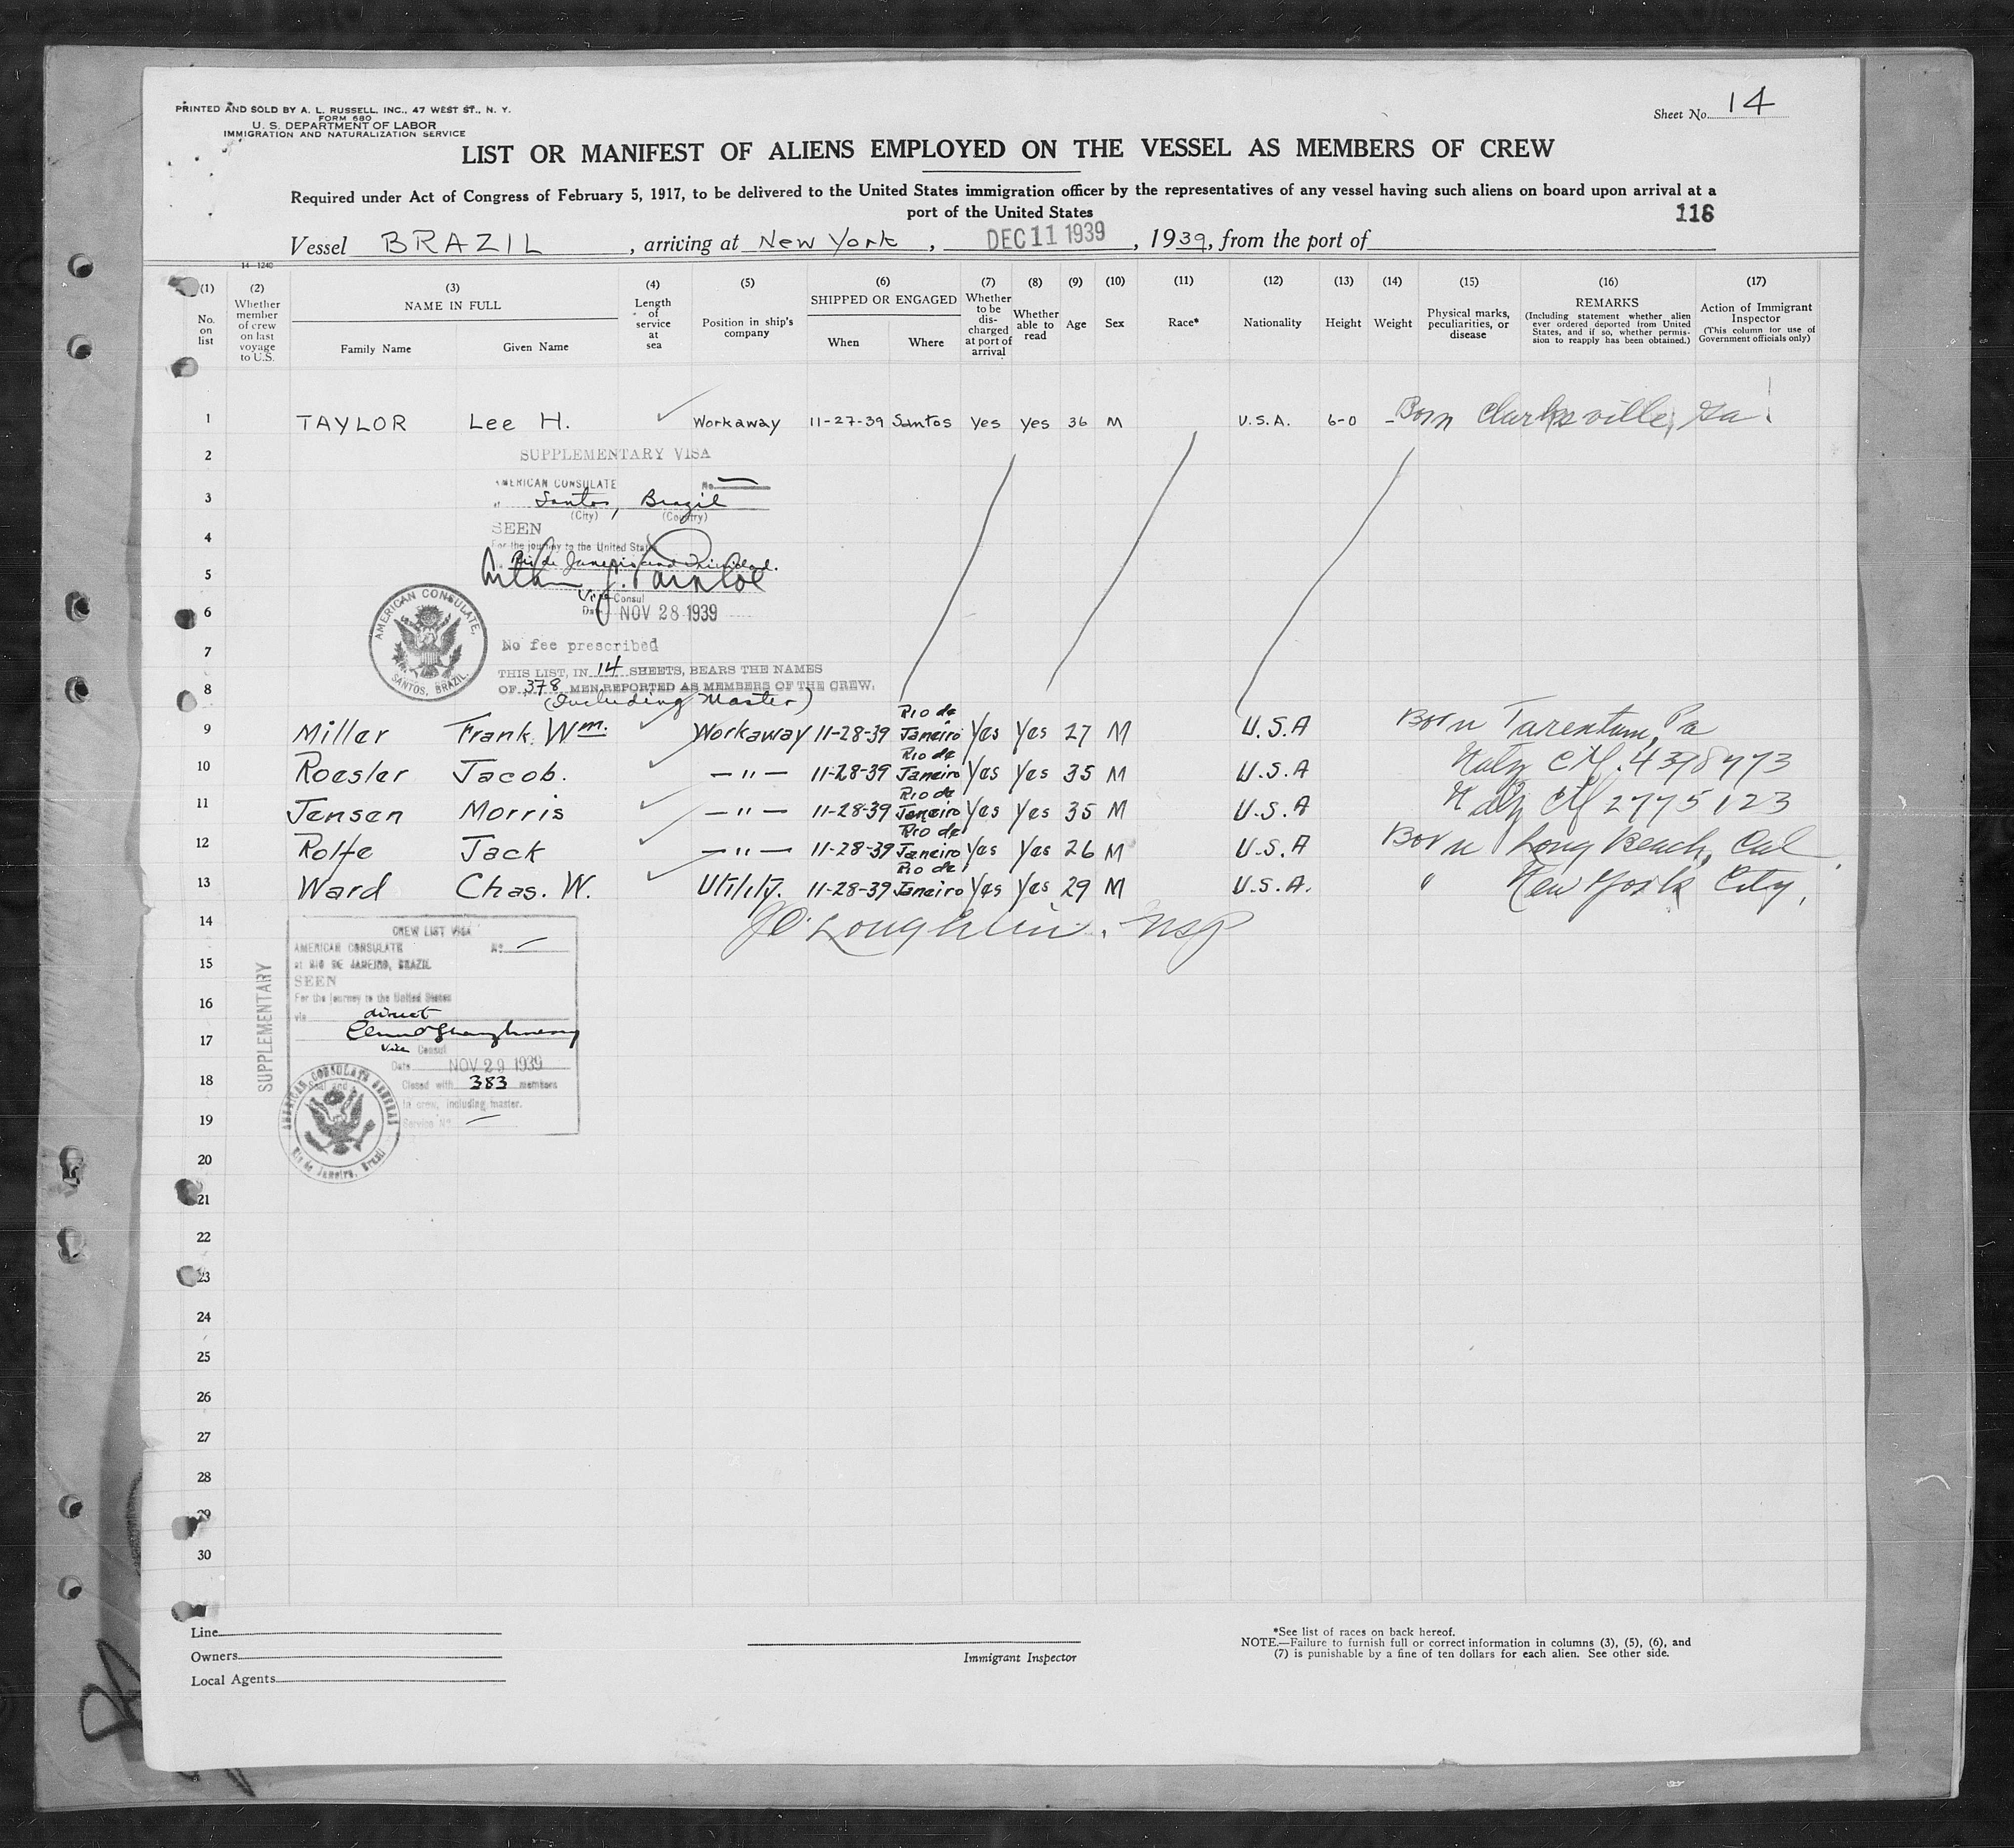 PRINTED AND SOLD BY A. L. RUSSELL, INC., 47 WEST ST., N. Y.
FORM 680
U. S. DEPARTMENT OF LABOR
IMMIGRATION AND NATURALIZATION SERVICE
Sheet No. 14
LIST OR MANIFEST OF ALIENS EMPLOYED ON THE VESSEL AS MEMBERS OF CREW
Required under Act of Congress of February 5, 1917, to be delivered to the United States immigration officer by the representatives of any vessel having such aliens on board upon arrival at a
port of the United States
116
Vessel BRAZIL, arriving at New York, DEC 11 1939, 1939, from the port of
14-1240
(1) (2) (3) (4) (5) (6) (7) (8) (9) (10) (11) (12) (13) (14) (15) (16) (17)
No. on list
Whether member of crew on last voyage to U.S.
NAME IN FULL
Family Name Given Name
Length of service at sea
Position in ship's company
SHIPPED OR ENGAGED
When Where
Whether to be discharged at port of arrival
Whether able to read
Age
Sex
Race*
Nationality
Height
Weight
Physical marks, peculiarities, or disease
REMARKS
(Including statement whether alien ever ordered deported from United States, and if so, whether permission to reapply has been obtained.)
Action of Immigrant Inspector
(This column for use of Government officials only)
1 TAYLOR Lee H. Workaway 11-27-39 Santos Yes Yes 36 M U.S.A. 6-0 Born Clarksville, Ga.
2 SUPPLEMENTARY VISA
AMERICAN CONSULATE No. —
3 at Santos, Brazil
(City) (Country)
SEEN
4 For the journey to the United States
Rio de Janeiro and Trinidad.
5
Vice Consul
6 Date NOV 28 1939
AMERICAN CONSULATE, SANTOS, BRAZIL.
7 No fee prescribed
THIS LIST, IN 14 SHEETS, BEARS THE NAMES
8 OF 378 MEN REPORTED AS MEMBERS OF THE CREW.
(Including Master)
9 Miller Frank Wm. Workaway 11-28-39 Rio de Janeiro Yes Yes 27 M U.S.A Born Tarentum, Pa
10 Roesler Jacob. — " — 11-28-39 Rio de Janeiro Yes Yes 35 M U.S.A 4398773
11 Jensen Morris — " — 11-28-39 Rio de Janeiro Yes Yes 35 M U.S.A 2775123
12 Rolfe Jack — " — 11-28-39 Rio de Janeiro Yes Yes 26 M U.S.A Born Long Beach, Cal.
13 Ward Chas. W. Utility. 11-28-39 Rio de Janeiro Yes Yes 29 M U.S.A. " New York City,
14 J O'Loughlin. Insp
CREW LIST VISA
AMERICAN CONSULATE No. —
15 at RIO DE JANEIRO, BRAZIL
SEEN
16 For the journey to the United States
via direct
17
Vice Consul
SUPPLEMENTARY
Date NOV 29 1939
18 Closed with 383 members
in crew, including master.
19 Service No. —
AMERICAN CONSULATE GENERAL Rio de Janeiro, Brazil
20
21
22
23
24
25
26
27
28
29
30
Line
Owners
Local Agents
Immigrant Inspector
*See list of races on back hereof.
NOTE.—Failure to furnish full or correct information in columns (3), (5), (6), and
(7) is punishable by a fine of ten dollars for each alien. See other side.